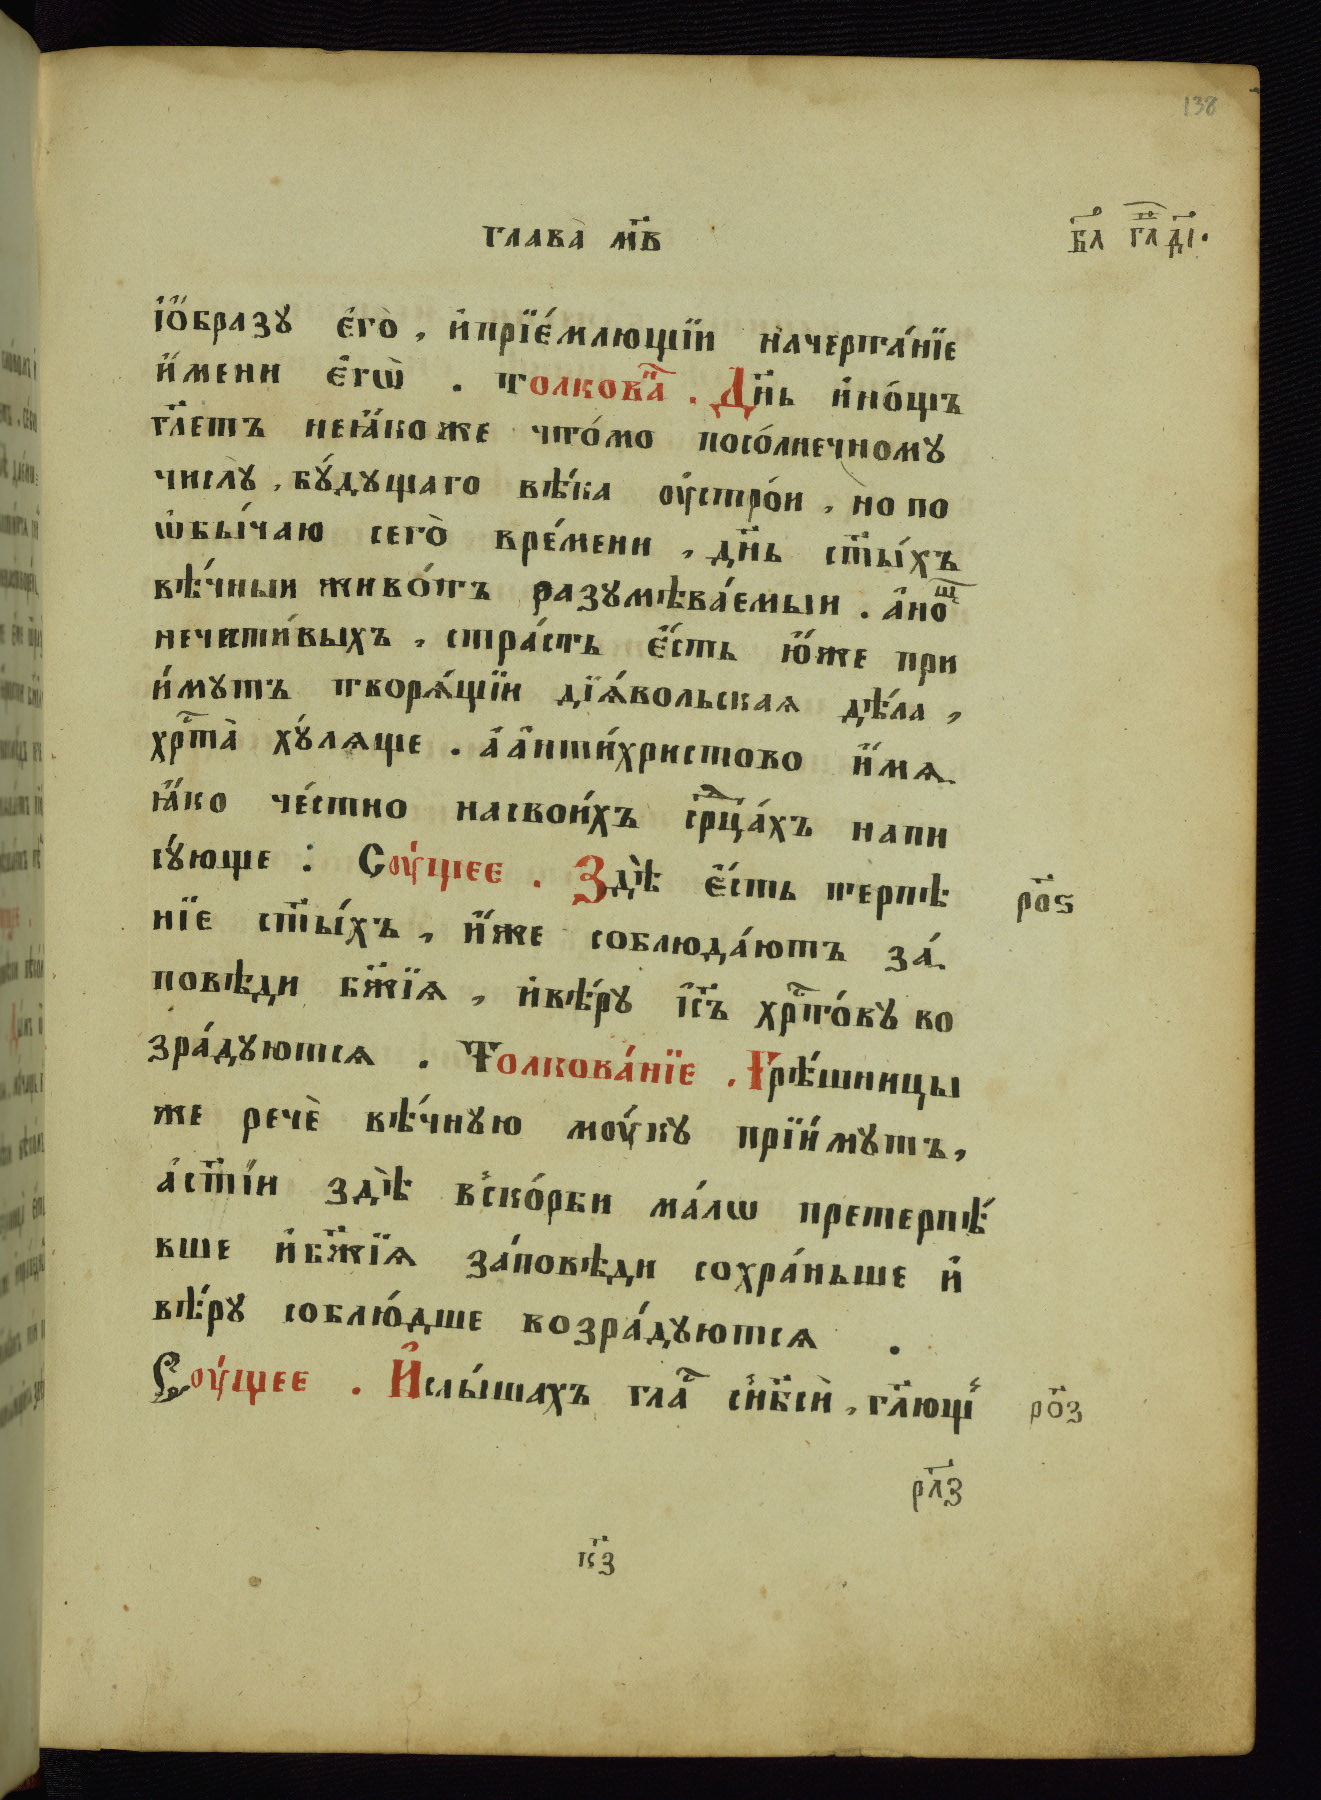 138
глава̀ м҃в
в҃л гл҃ д҃і.
іѻ҆́бразꙋ є҆го̀ , и҆прїе́млющїи начерта́нїе
и҆́мени є҆гѡ̀ . толкова҃ . Дн҃ь и҆но́щъ
гл҃етъ неꙗ҆́коже что́мо посо́лнечномꙋ
числꙋ̀ , бꙋ́дꙋщаго вѣ́ка оу҆стро́и , но по
ѡ҆бы́чаю сего̀ вре́мени , дн҃ь ст҃ы́хъ
вѣ́чныи живо́тъ разꙋмѣва́емыи . а҆ноⷳ
нечести́выхъ , стра́сть є҆́сть ю҆́же при
и́мꙋтъ творѧ́щїи дїѧ́вольскаꙗ дѣ́ла ,
хрⷭ҇та̀ хꙋ́лѧще . а҆а҆нти́христово и҆́мѧ
ꙗ҆́ко че́стно насвои́хъ срⷣца́хъ напи
сꙋ́юще : Соу́щее . Здѣ̀ є҆́сть терпѣ
нїе ст҃ы́хъ , и҆́же соблюда́ютъ за́
повѣди бж҃їѧ , и҆вѣ́рꙋ іс҃ъ хрⷭ҇то́вꙋ во
зра́дꙋютсѧ . Толкова́нїе . Грѣ́шницы
же речѐ вѣ́чнꙋю моу́кꙋ прїи́мꙋтъ ,
а҆ст҃і́и здѣ̀ в̾ско́рби ма́лѡ претерпѣ́
вше и҆бж҃їѧ за́повѣди сохра́ньше и҆
вѣ́рꙋ соблю́дше возра́дꙋютсѧ .
Соу́щее . И҆слы́шахъ глаⷭ҇ с̾нб҃сѝ , гл҃ющ̾
р҃оѕ
р҃оз
р҃лз
к҃з